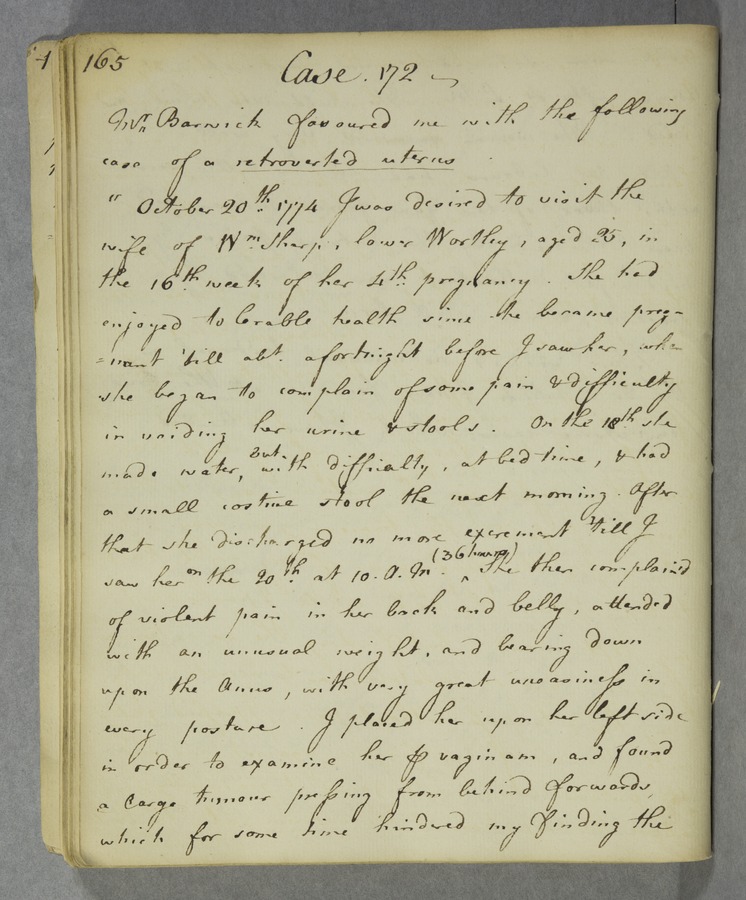 165
Case. 172
Mr. Barwick favoured me with the following
case of a retroverted uterus.
" October 20th. 1774 I was desired to visit the
wife of Wm. Sharp, lower Wortley, aged 25, in
the 16th. week of her 4th. pregnancy. She had
enjoyed tolerable health since she became preg-
=nant 'till abt. a fortnight before I saw her, when
she began to complain of some pain & difficulty
in voiding her urine & stools. On the 18th she
made water, but with difficulty, at bed time, & had
a small costive stool the next morning. After
that she discharged no more excrement 'till I
saw her on the 20th. at 10. A.M. (36 hours) She then complained
of violent pain in her back and belly, attended
with an unusual weight, and bearing down
upon the Anus, with very great uneasiness in
every posture. I placed her upon her left side
in order to examine her p vaginam, and found
a large tumour pressing from behind forwards,
which for some time hindered my finding the